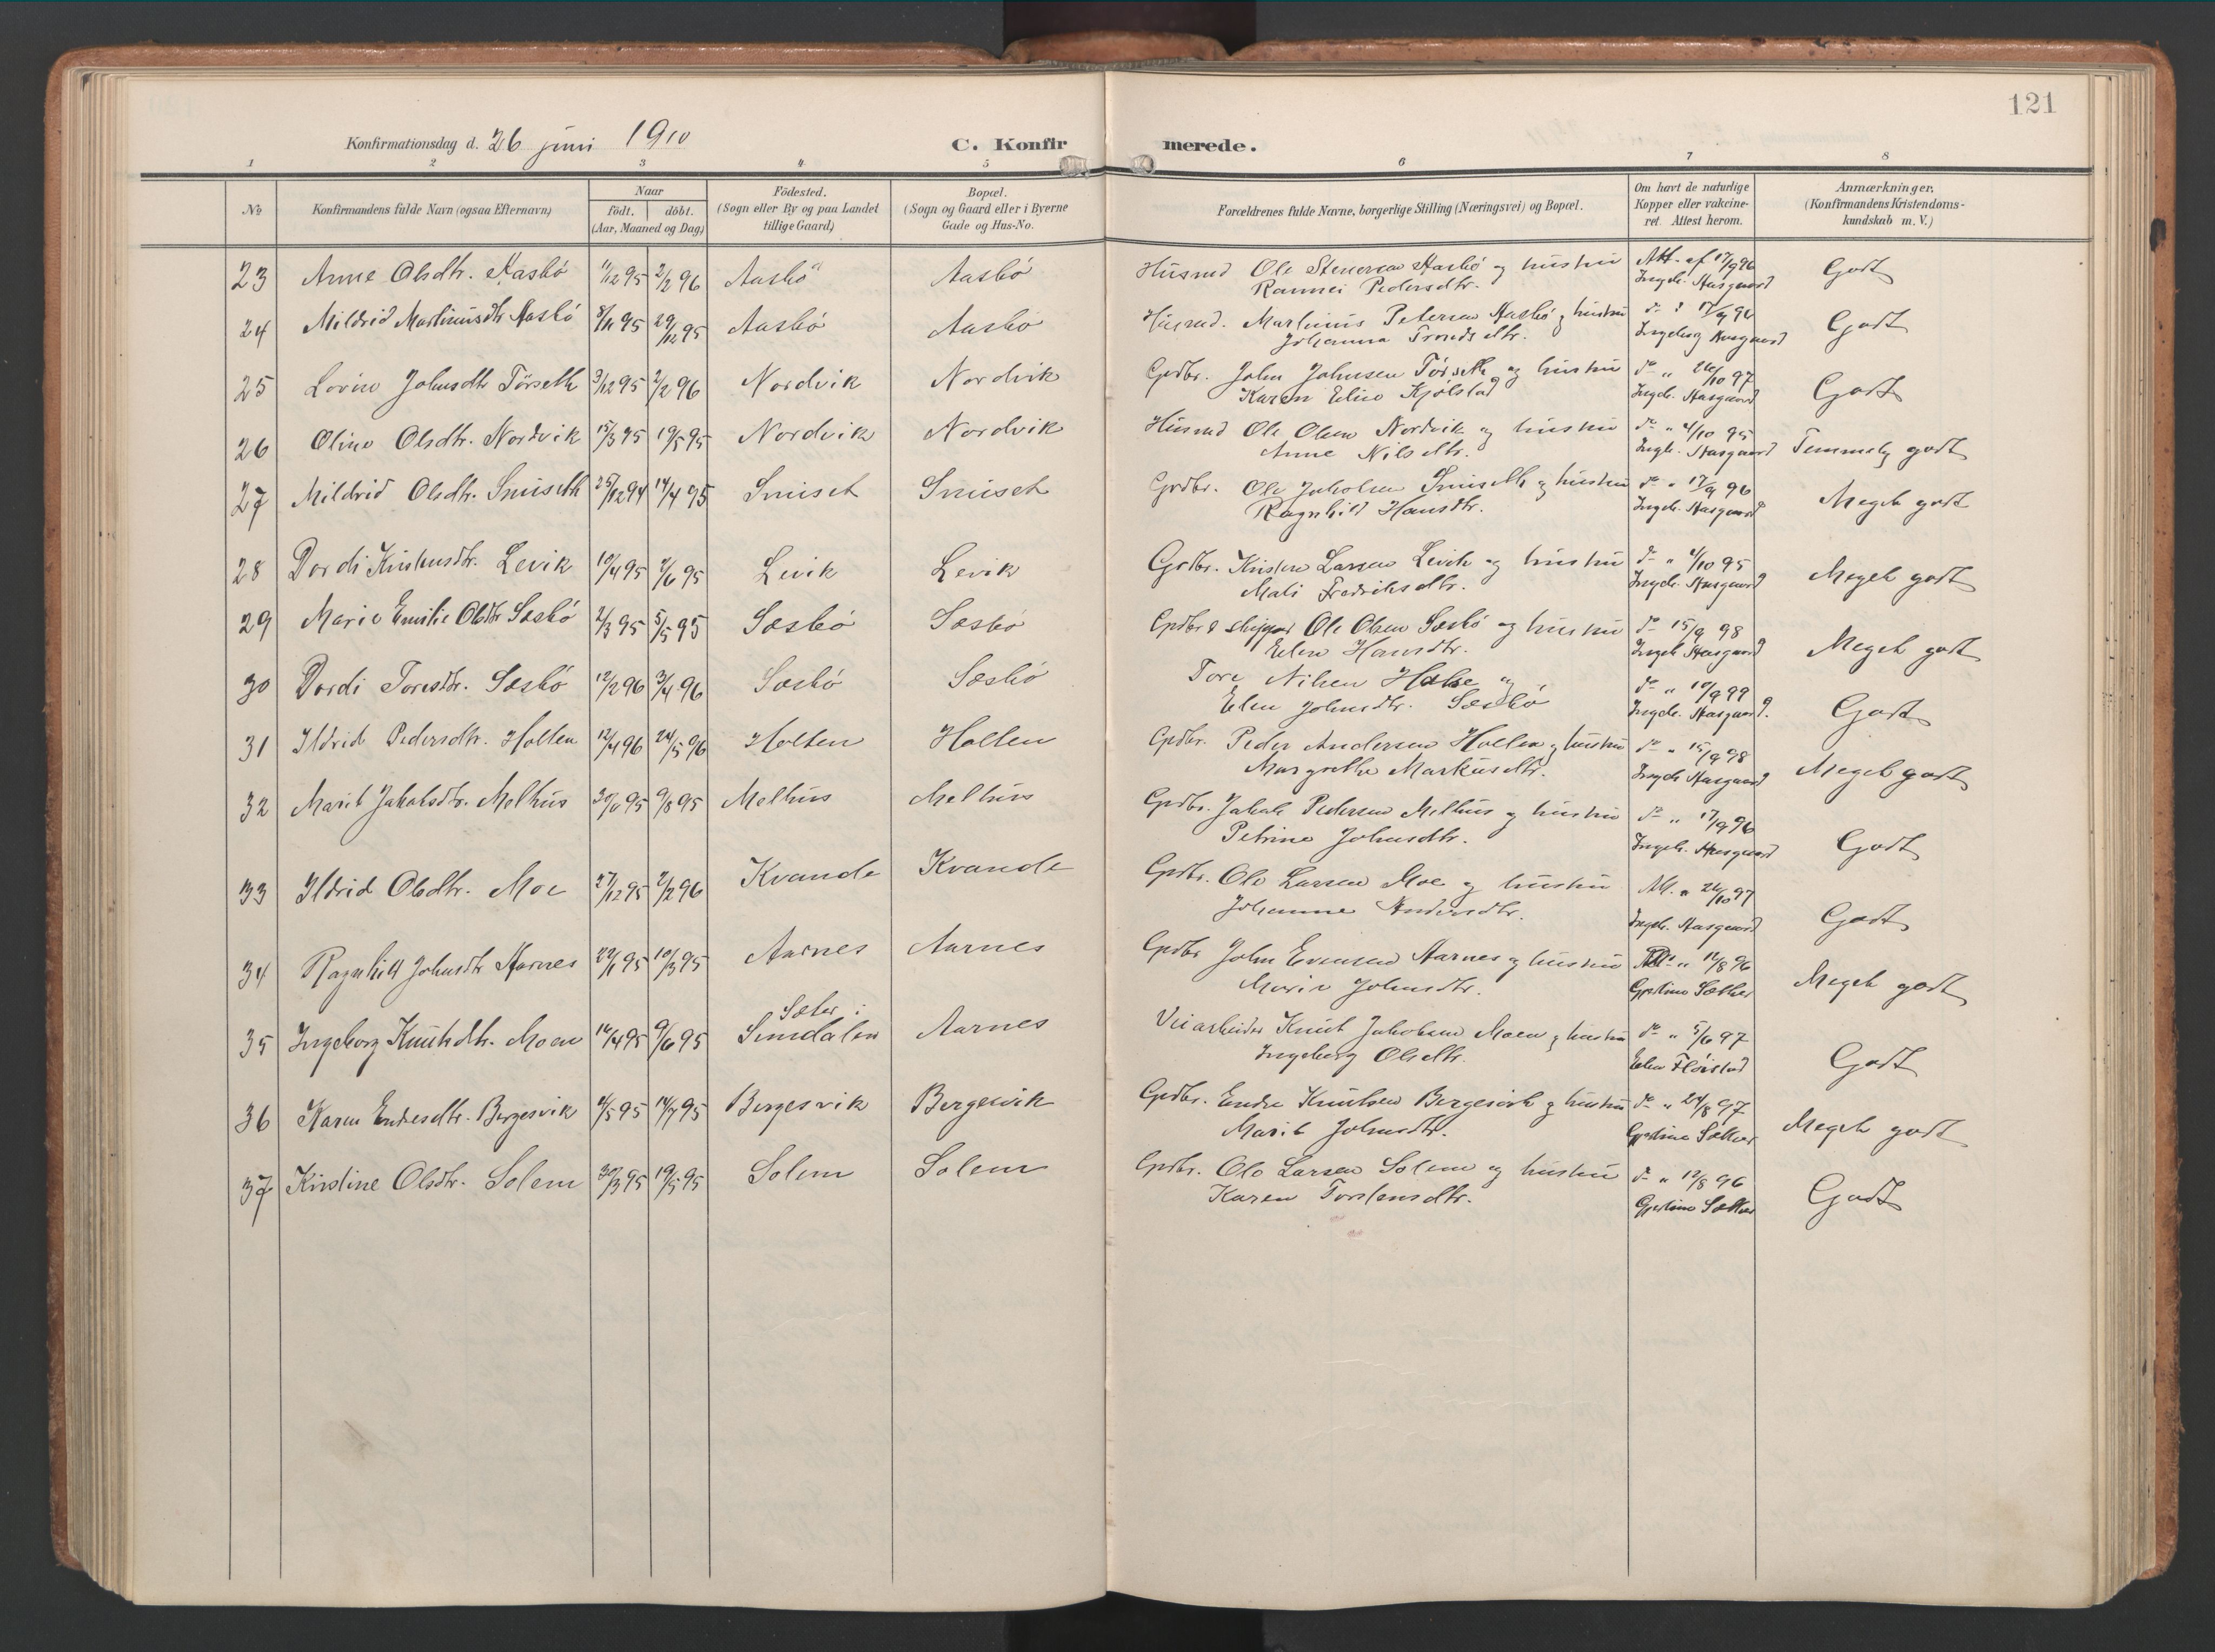 121
Konfirmationsdag d. 26 juni 1910
C. Konfirmerede.
1 2 3 4 5 6 7 8
No
Konfirmandens fulde Navn (ogsaa Efternavn)
Naar
født. døbt.
(Aar, Maaned og Dag)
Födested.
(Sogn eller By og paa Landet
tillige Gaard)
Bopæl.
(Sogn og Gaard eller i Byerne
Gade og Hus-No.
Forældrenes fulde Navne, borgerlige Stilling (Næringsvei) og Bopæl.
Om havt de naturlige
Kopper eller vakcine-
ret. Attest herom.
Anmærkninger.
(Konfirmandens Kristendoms-
kundskab m. V.)
23 Anne Olsdtr. Aasbö 11/12 95 2/2 96 Aasbö Aasbö Husmd Ole Stenersen Aasbö og hustru Att. af 17/9 96 Godt
Rannei Pedersdtr. Ingeb. Aasgaard
24 Mildrid Martinusdtr Aasbö 8/11 95 29/12 95 Aasbö Aasbö Husmd. Martinus Petersen Aasbö og hustru do 17/9 96 Godt
Johanna Trondsdtr. Ingeborg Aasgaard
25 Lovise Johnsdtr Törseth 3/12 95 2/2 96 Nordvik Nordvik Grdbr. John Johnsen Törseth og hustru do " 26/10 97 Godt
Karen Eline Kjölstad Ingeb. Aasgaard
26 Oline Olsdtr. Nordvik 15/3 95 19/5 95 Nordvik Nordvik Husmd Ole Olsen Nordvik og hustru do " 4/10 95 Temmelig godt
Anne Nilsdtr. Ingeb. Aasgaard
27 Mildrid Olsdtr. Snuseth 25/12 94 14/4 95 Snuset Snuset Grdbr. Ole Jakobsen Snuseth og hustru do " 17/9 96 Meget godt
Ragnhild Hansdtr. Ingeb. Aasgaard
28 Dordi Kristensdtr. Levik 10/4 95 2/6 95 Levik Levik Grdbr. Kristen Larsen Levik og hustru do " 4/10 95 Meget godt
Mali Fredriksdtr. Ingeb. Aasgaard
29 Marie Emilie Olsdtr Sæsbö 2/3 95 5/5 95 Sæsbö Sæsbö Grdbr & skipper Ole Olsen Sæsbö og hustru do 15/9 98 Meget godt
Elen Hansdtr. Ingeb Aasgaard
30 Dordi Toresdtr. Sæsbö 12/2 96 3/4 96 Sæsbö Sæsbö Tore Nilsen og do " 10/9 99 Godt
Elen Johnsdtr. Sæsbö Ingeb. Aasgaard.
31 Ildrid Pedersdtr. Holten 12/4 96 24/5 96 Holten Holten Grdbr. Peder Andersen Holten og hustru do " 15/9 98 Meget godt
Margrethe Markusdtr. Ingeb Aasgaard
32 Marit Jakobsdtr. Melhus 9/8 95 Melhus Melhus Grdbr. Jakob Pedersen Melhus og hustru do " 17/9 96 Godt
Petrine Johnsdtr. Ingeb. Aasgaard
33 Ildrid Olsdtr. Moe 27/12 95 2/2 96 Kvande Kvande Grdbr. Ole Larsen Moe og hustru Att. " 26/10 97 Godt
Johanne Andersdtr. Ingeb. Aasgaard
34 Ragnhild Johnsdtr Aarnes 22/1 95 10/3 95 Aarnes Aarnes Grdbr John Evensen Aarnes og hustru " 12/8 96 Meget godt
Marie Johnsdtr. Gjertine Sæther
35 Ingeborg Knutsdtr. Moen 14/4 95 9/6 95 Sæter i Aarnes Veiarbeider Knut Jakobsen Moen og hustru do " 5/6 97 Godt
Sunndalen Ingeborg Olsdtr. Elen Flöistad
36 Karen Endresdtr. Bergesvik 4/5 95 14/7 95 Bergesvik Bergesvik Grdbr. Endre Knutsen Bergesvik og hustru do " 24/8 97 Meget godt
Marit Johnsdtr. Gjertine Sæther
37 Kirstine Olsdtr. Solem 30/3 95 19/5 95 Solem Solem Grdbr. Ole Larsen Solem og hustru do " 12/8 96 Godt
Karen Torstensdtr. Gjertine Sæther